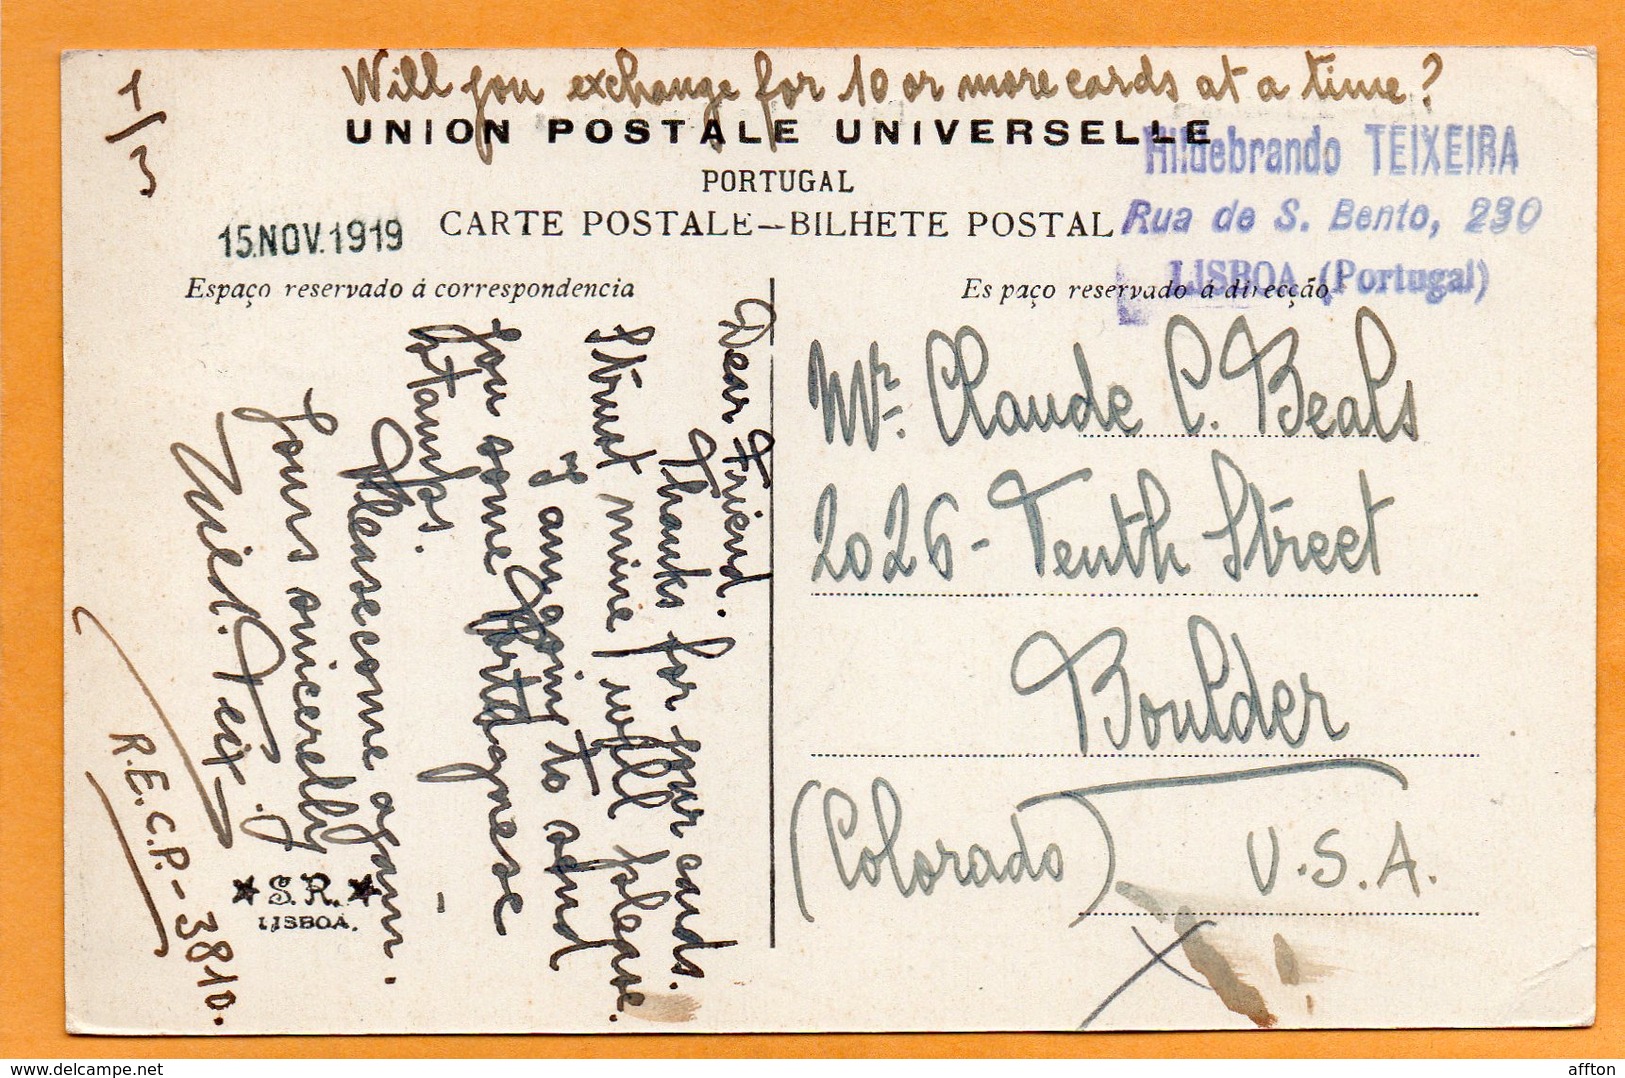 Will you exchange for 10 or more cards at a time?
1/3
UNION POSTALE UNIVERSELLE
PORTUGAL
CARTE POSTALE—BILHETE POSTAL
15.NOV.1919
Hildebrando TEIXEIRA
Rua de S. Bento, 230
LISBOA (Portugal)
Espaço reservado á correspondencia
Espaço reservado á direcção
Dear Friend.
Thanks for your cards.
I trust mine will please.
I am going to send
you some Portuguese
stamps.
Please come again.
Yours sincerelly
Hild. Teix.
R.E.C.P.-3810.
★ S.R. ★
LISBOA.
Mr. Claude C. Beals
2026 - Tenth Street
Boulder
(Colorado) U.S.A.
delcampe.net
affton